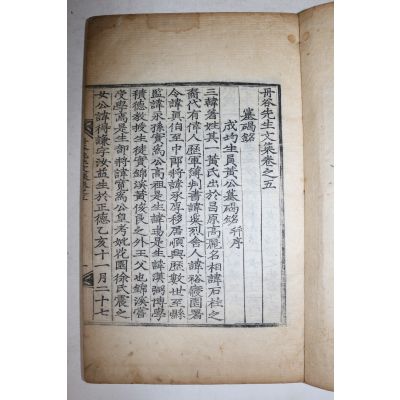 丹谷先生文集卷之五
墓碣銘
成均生員黃公墓碣銘并序
三韓著姓其一黃氏出於昌原高麗名相諱石柱之
裔代有偉人歷軍簿判書諱 烈舍人諱裕 署
令諱興伯至中郎將諱承厚移居順興歷數世至縣
監諱永孫實爲公高祖是生諱暘是生諱漢弼博學
積德教授生徒實錦溪黃俊良之外王父也錦溪嘗
受學焉是生部將諱寬爲公皇考妣花園徐氏震之
女公諱得謙字汝益生於正德乙亥十一月二十七